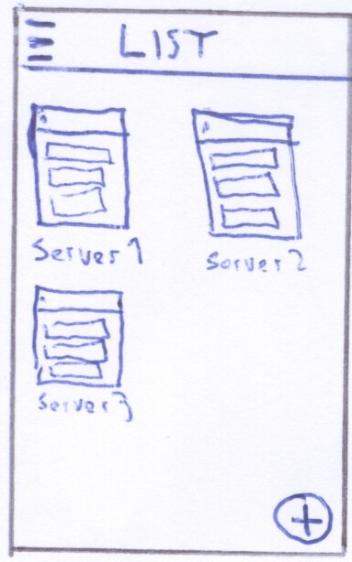 LIST
Server 1
Server 2
Server 3